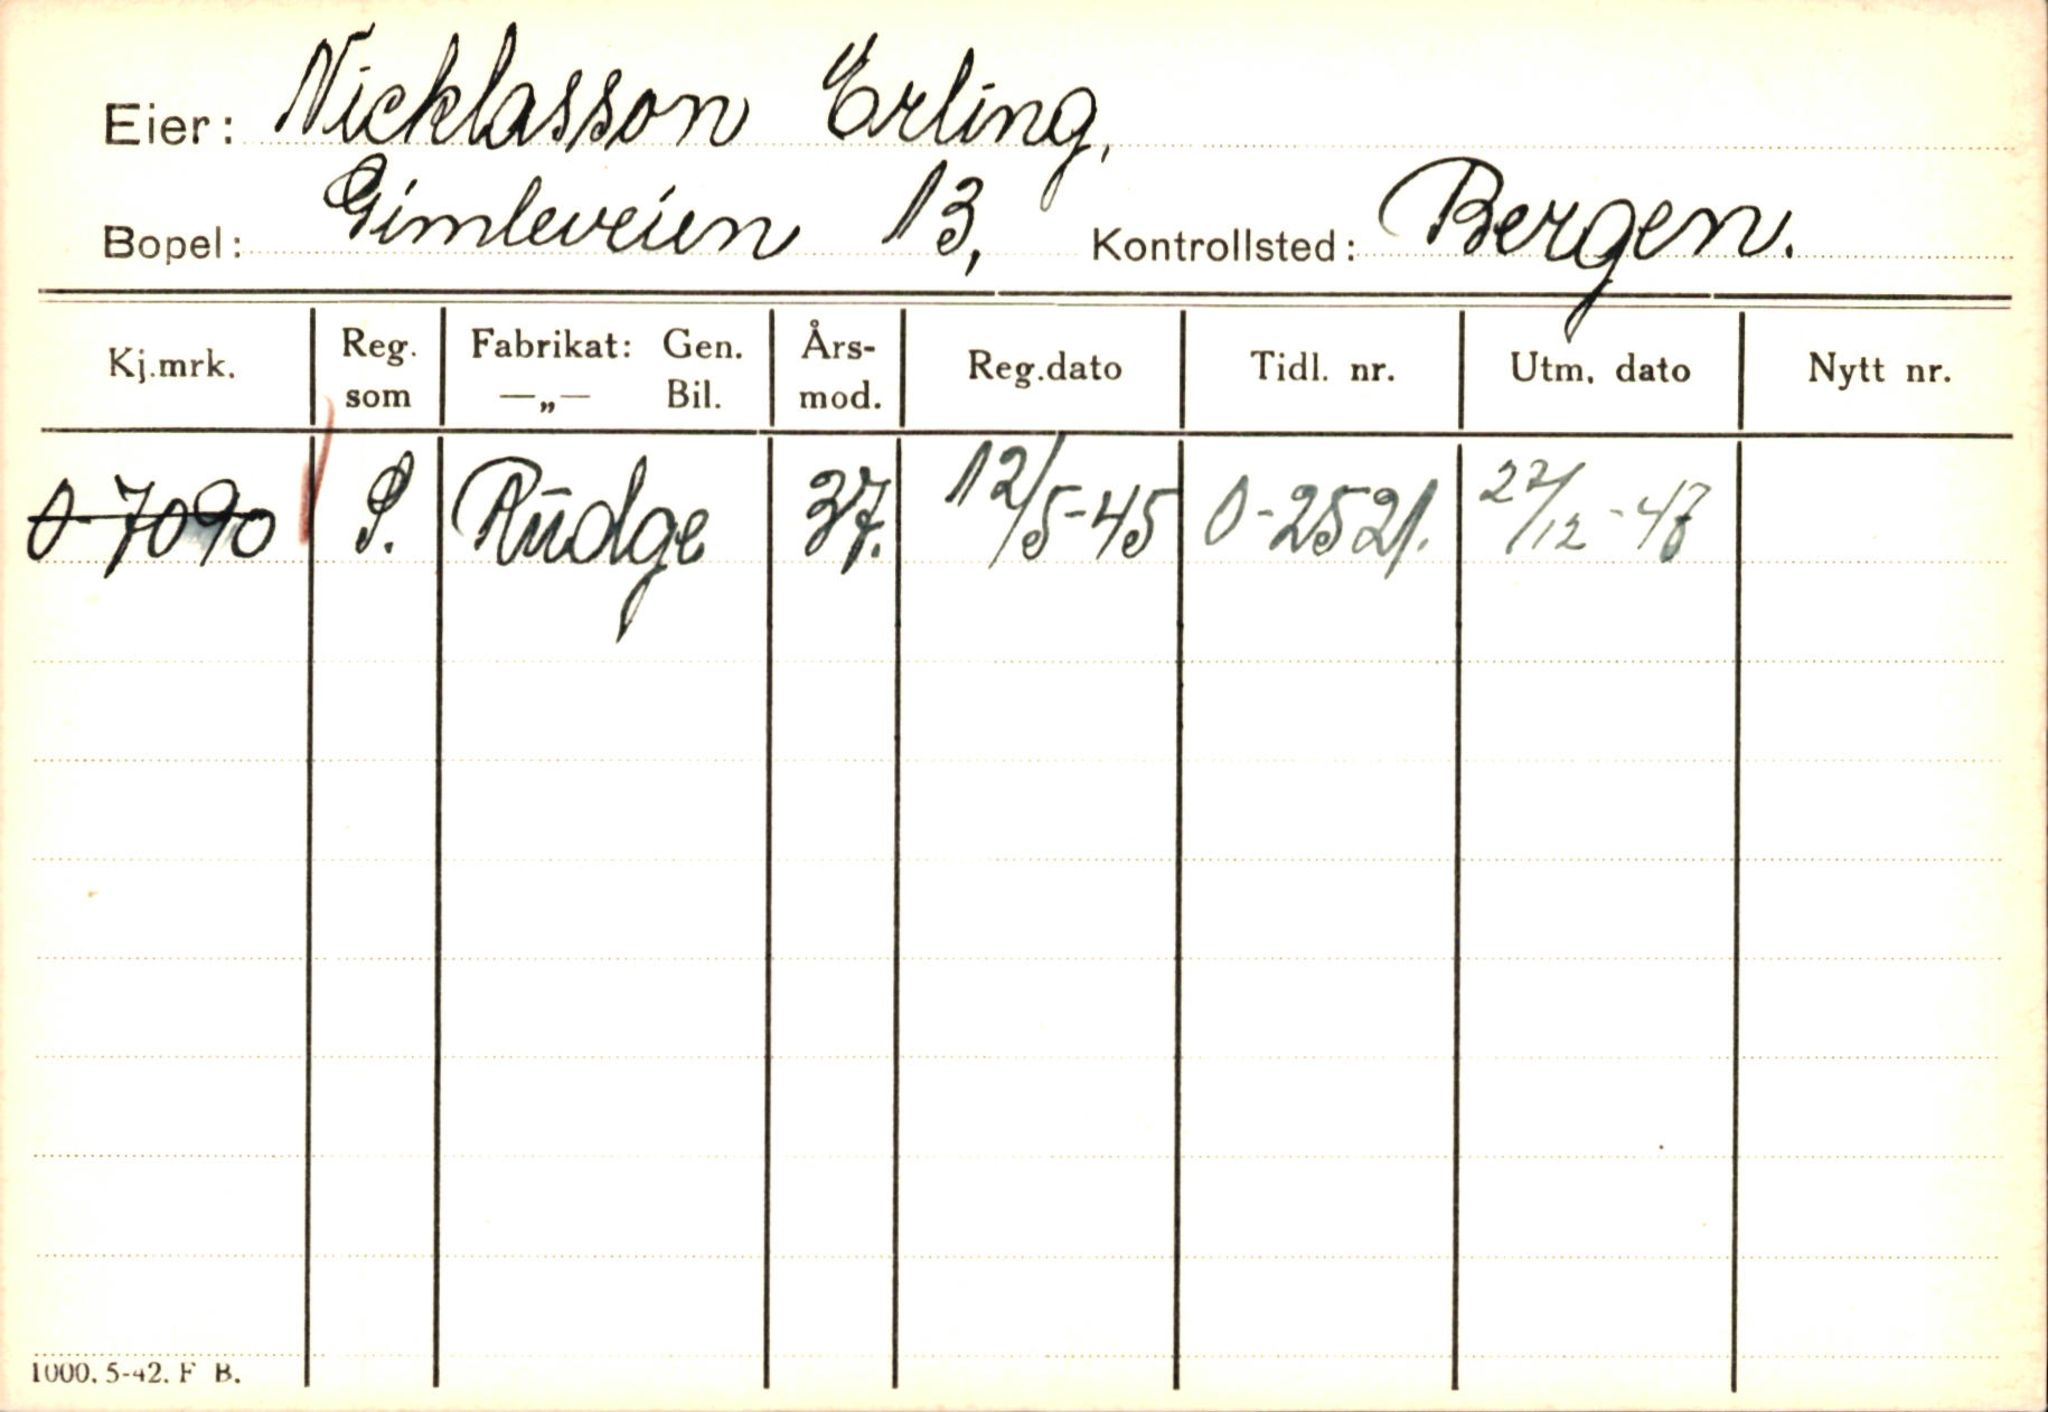 Eier: Nicklasson Erling,
Bopel: Gimleveien 13, Kontrollsted: Bergen.
Kj.mrk. Reg. som Fabrikat: Gen. —„— Bil. Års-mod. Reg.dato Tidl. nr. Utm. dato Nytt nr.
O-7090 P. Rudge 37. 12/5-45 O-2521. 22/12-47
1000. 5-42. F B.